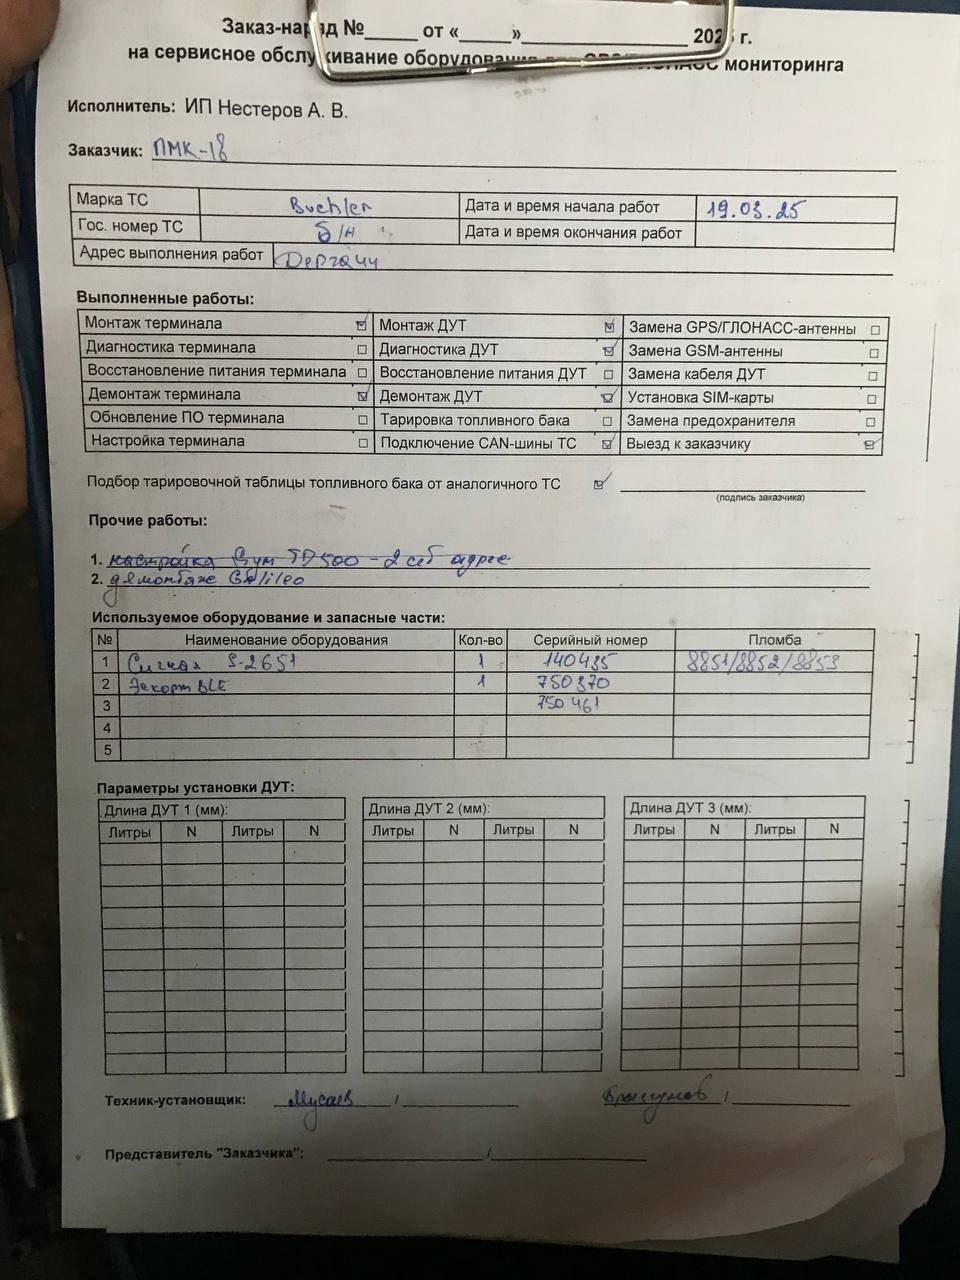 Заказ-наряд №_____ от «_____»_______________ 202 г.
на сервисное обслуживание оборудования мониторинга
Исполнитель: ИП Нестеров А. В.
Заказчик: ПМК-18
Марка ТС Buchler Дата и время начала работ 19.03.25
Гос. номер ТС б/н Дата и время окончания работ
Адрес выполнения работ Дергачи
Выполненные работы:
Монтаж терминала ☑ Монтаж ДУТ ☑ Замена GPS/ГЛОНАСС-антенны ☐
Диагностика терминала ☐ Диагностика ДУТ ☑ Замена GSM-антенны ☐
Восстановление питания терминала ☐ Восстановление питания ДУТ ☐ Замена кабеля ДУТ ☐
Демонтаж терминала ☑ Демонтаж ДУТ ☑ Установка SIM-карты ☐
Обновление ПО терминала ☐ Тарировка топливного бака ☐ Замена предохранителя ☐
Настройка терминала ☐ Подключение CAN-шины ТС ☑ Выезд к заказчику ☑
Подбор тарировочной таблицы топливного бака от аналогичного ТС ☑
(подпись заказчика)
Прочие работы:
1. настройка Дут TD500 - 2 сет адрес
2. демонтаж Galileo
Используемое оборудование и запасные части:
№ Наименование оборудования Кол-во Серийный номер Пломба
1 Сигнал S-2651 1 140435 8851/8852/8853
2 Эскорт BLE 1 750370
3 750461
4
5
Параметры установки ДУТ:
Длина ДУТ 1 (мм): Длина ДУТ 2 (мм): Длина ДУТ 3 (мм):
Литры N Литры N Литры N Литры N Литры N Литры N
Техник-установщик: Мусаев / /
Представитель "Заказчика": /